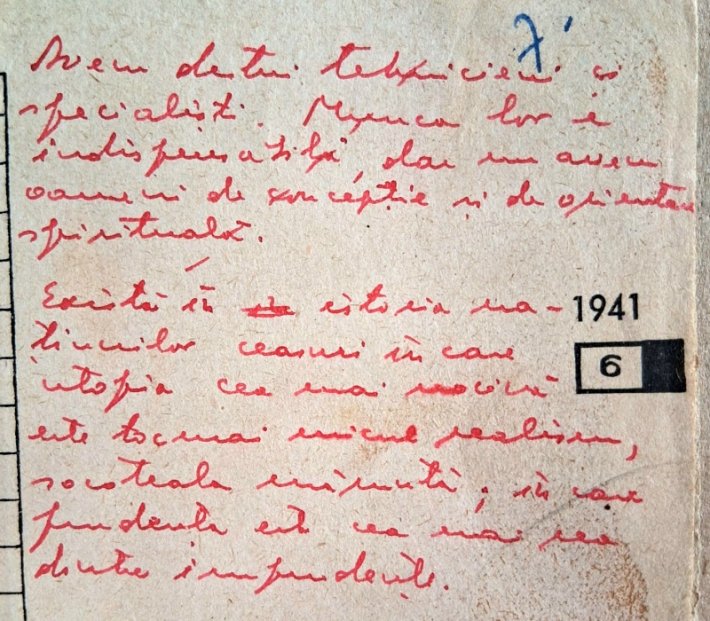 7'
Avem destui tehnicieni și
specialiști. Munca lor e
indispensabilă, dar nu avem
oameni de concepție și de orientare
spirituală.
Există în istoria na-
țiunilor ceasuri în care
utopia cea mai nocivă
este tocmai micul realism,
socoteala măruntă, în care
prudența este cea mai rea
dintre imprudențe.
1941
6